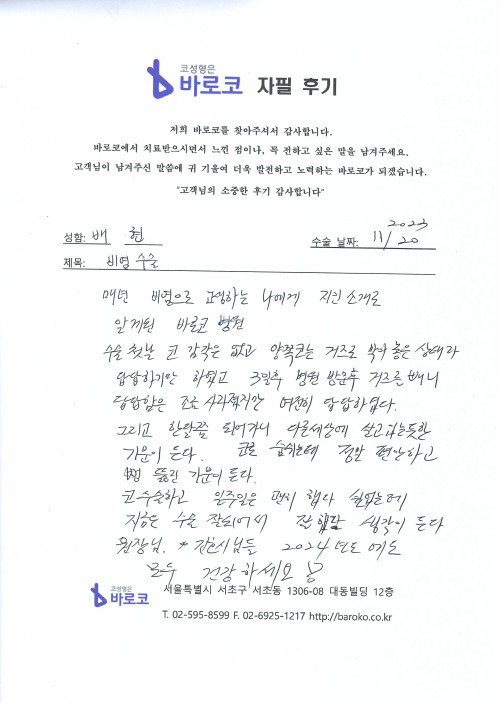 코성형은
바로코 자필 후기
저희 바로코를 찾아주셔서 감사합니다.
바로코에서 치료받으시면서 느낀 점이나, 꼭 전하고 싶은 말을 남겨주세요.
고객님이 남겨주신 말씀에 귀 기울여 더욱 발전하고 노력하는 바로코가 되겠습니다.
"고객님의 소중한 후기 감사합니다"
성함: 배 현 수술 날짜: 2023 11/20
제목: 비염 수술
매년 비염으로 고생하는 나에게 지인 소개로
알게된 바로코 병원
수술 첫날 코 감각은 없고 양쪽코는 거즈로 막아 놓은 상태라
답답하기만 하였고 3일후 병원 방문후 거즈를 빼니
답답함은 조금 사라졌지만 여전히 답답하였다.
그리고 한달쯤 되어가니 다른세상에 살고 있는듯한
기분이 든다. 코로 숨쉬는데 정말 편안하고
뻥 뚫린 기분이 든다.
코수술하고 일주일은 괜히 했다 싶었는데
지금은 수술 잘되어서 잘했단 생각이 든다
원장님, * 간호사님들 2024년도 에도
모두 건강하세요
코성형은
바로코 서울특별시 서초구 서초동 1306-08 대동빌딩 12층
T. 02-595-8599 F. 02-6925-1217 http://baroko.co.kr